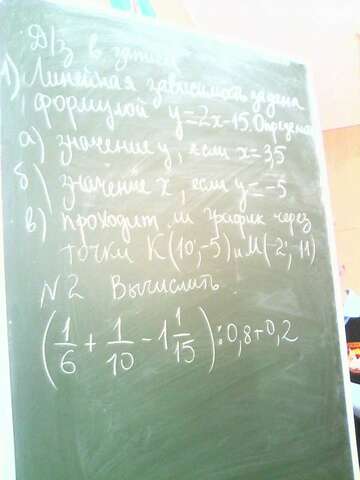 Д/з в
1) Линейная зависимость задана
формулой y=2x-15. Определ
а) значение y, если x=3,5
б) значение x, если y=-5
в) проходит ли график через
точки K(10;-5) и M(-2;-11)
N2 Вычислить.
(1/6 + 1/10 - 1 1/15) : 0,8 + 0,2